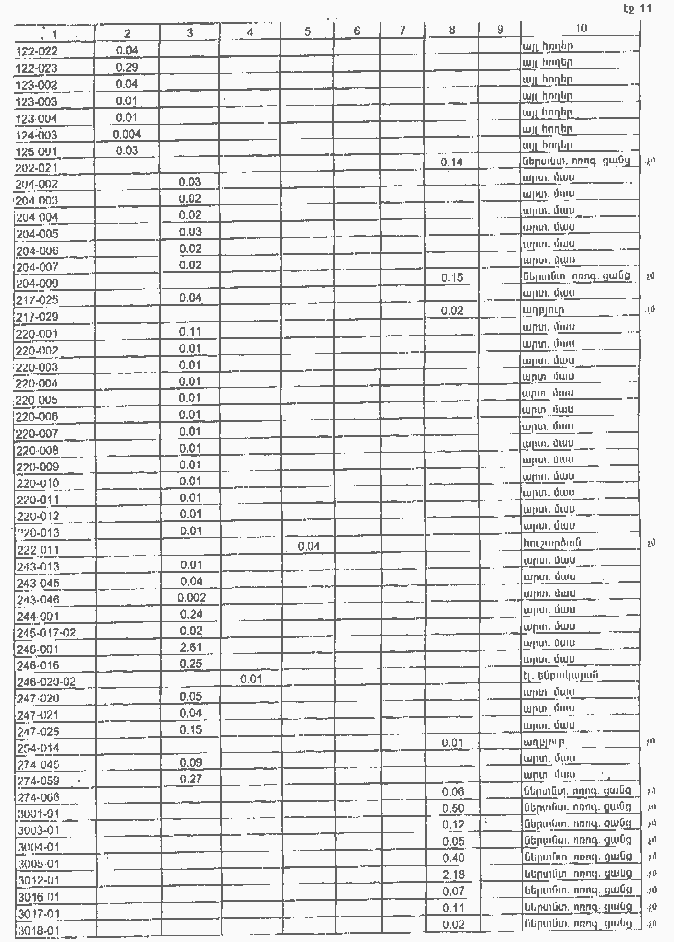 էջ 11
1 2 3 4 5 6 7 8 9 10
122-022 0.04 այլ հողեր
122-023 0.29 այլ հողեր
123-002 0.04 այլ հողեր
123-003 0.01 այլ հողեր
123-004 0.01 այլ հողեր
124-003 0.004 այլ հողեր
125-001 0.03 այլ հողեր
202-021 0.14 ներտնտ. ոռոգ. ցանց
204-002 0.03 արտ. մաս
204-003 0.02 արտ. մաս
204-004 0.02 արտ. մաս
204-005 0.03 արտ. մաս
204-006 0.02 արտ. մաս
204-007 0.02 արտ. մաս
204-009 0.15 ներտնտ. ոռոգ. ցանց
217-025 0.04 արտ. մաս
217-029 0.02 աղբյուր
220-001 0.11 արտ. մաս
220-002 0.01 արտ. մաս
220-003 0.01 արտ. մաս
220-004 0.01 արտ. մաս
220-005 0.01 արտ. մաս
220-006 0.01 արտ. մաս
220-007 0.01 արտ. մաս
220-008 0.01 արտ. մաս
220-009 0.01 արտ. մաս
220-010 0.01 արտ. մաս
220-011 0.01 արտ. մաս
220-012 0.01 արտ. մաս
220-013 0.01 արտ. մաս
222-011 0.04 հուշարձան
243-013 0.01 արտ. մաս
243-045 0.04 արտ. մաս
243-046 0.002 արտ. մաս
244-001 0.24 արտ. մաս
245-017-02 0.02 արտ. մաս
246-001 2.61 արտ. մաս
246-016 0.25 արտ. մաս
246-020-02 0.01 էլ. ենթակայան
247-020 0.05 արտ. մաս
247-021 0.04 արտ. մաս
247-025 0.15 արտ. մաս
254-014 0.01 աղբյուր
274-045 0.09 արտ. մաս
274-059 0.27 արտ. մաս
274-066 0.06 ներտնտ. ոռոգ. ցանց
3001-01 0.50 ներտնտ. ոռոգ. ցանց
3003-01 0.12 ներտնտ. ոռոգ. ցանց
3004-01 0.05 ներտնտ. ոռոգ. ցանց
3005-01 0.40 ներտնտ. ոռոգ. ցանց
3012-01 2.18 ներտնտ. ոռոգ. ցանց
3016-01 0.07 ներտնտ. ոռոգ. ցանց
3017-01 0.11 ներտնտ. ոռոգ. ցանց
3018-01 0.02 ներտնտ. ոռոգ. ցանց